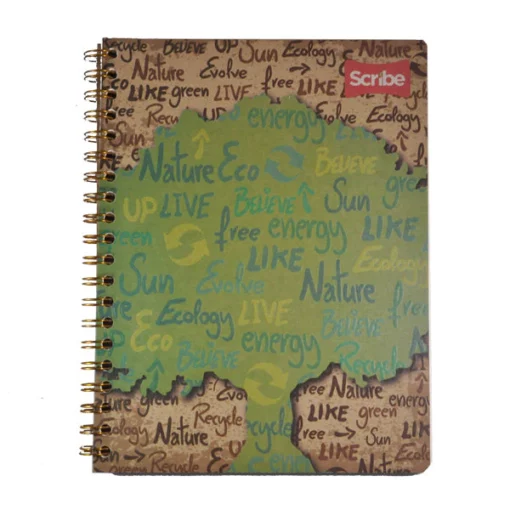 Recycle BELIEVE UP Sun Ecology
Nature Evolve free LIKE
Eco LIKE green LIVE free LIKE
Scribe
free UP energy
Sun
Nature Eco BELIEVE
UP LIVE BELIEVE Sun green
green free energy LIKE
Sun Evolve LIKE Nature Ecology
Ecology LIVE BELIEVE free
UP Eco BELIEVE energy Recycle
Nature green free Nature energy
Recycle LIKE green
Ecology Nature Recycle free Sun LIKE
Green Recycle Eco energy Nature